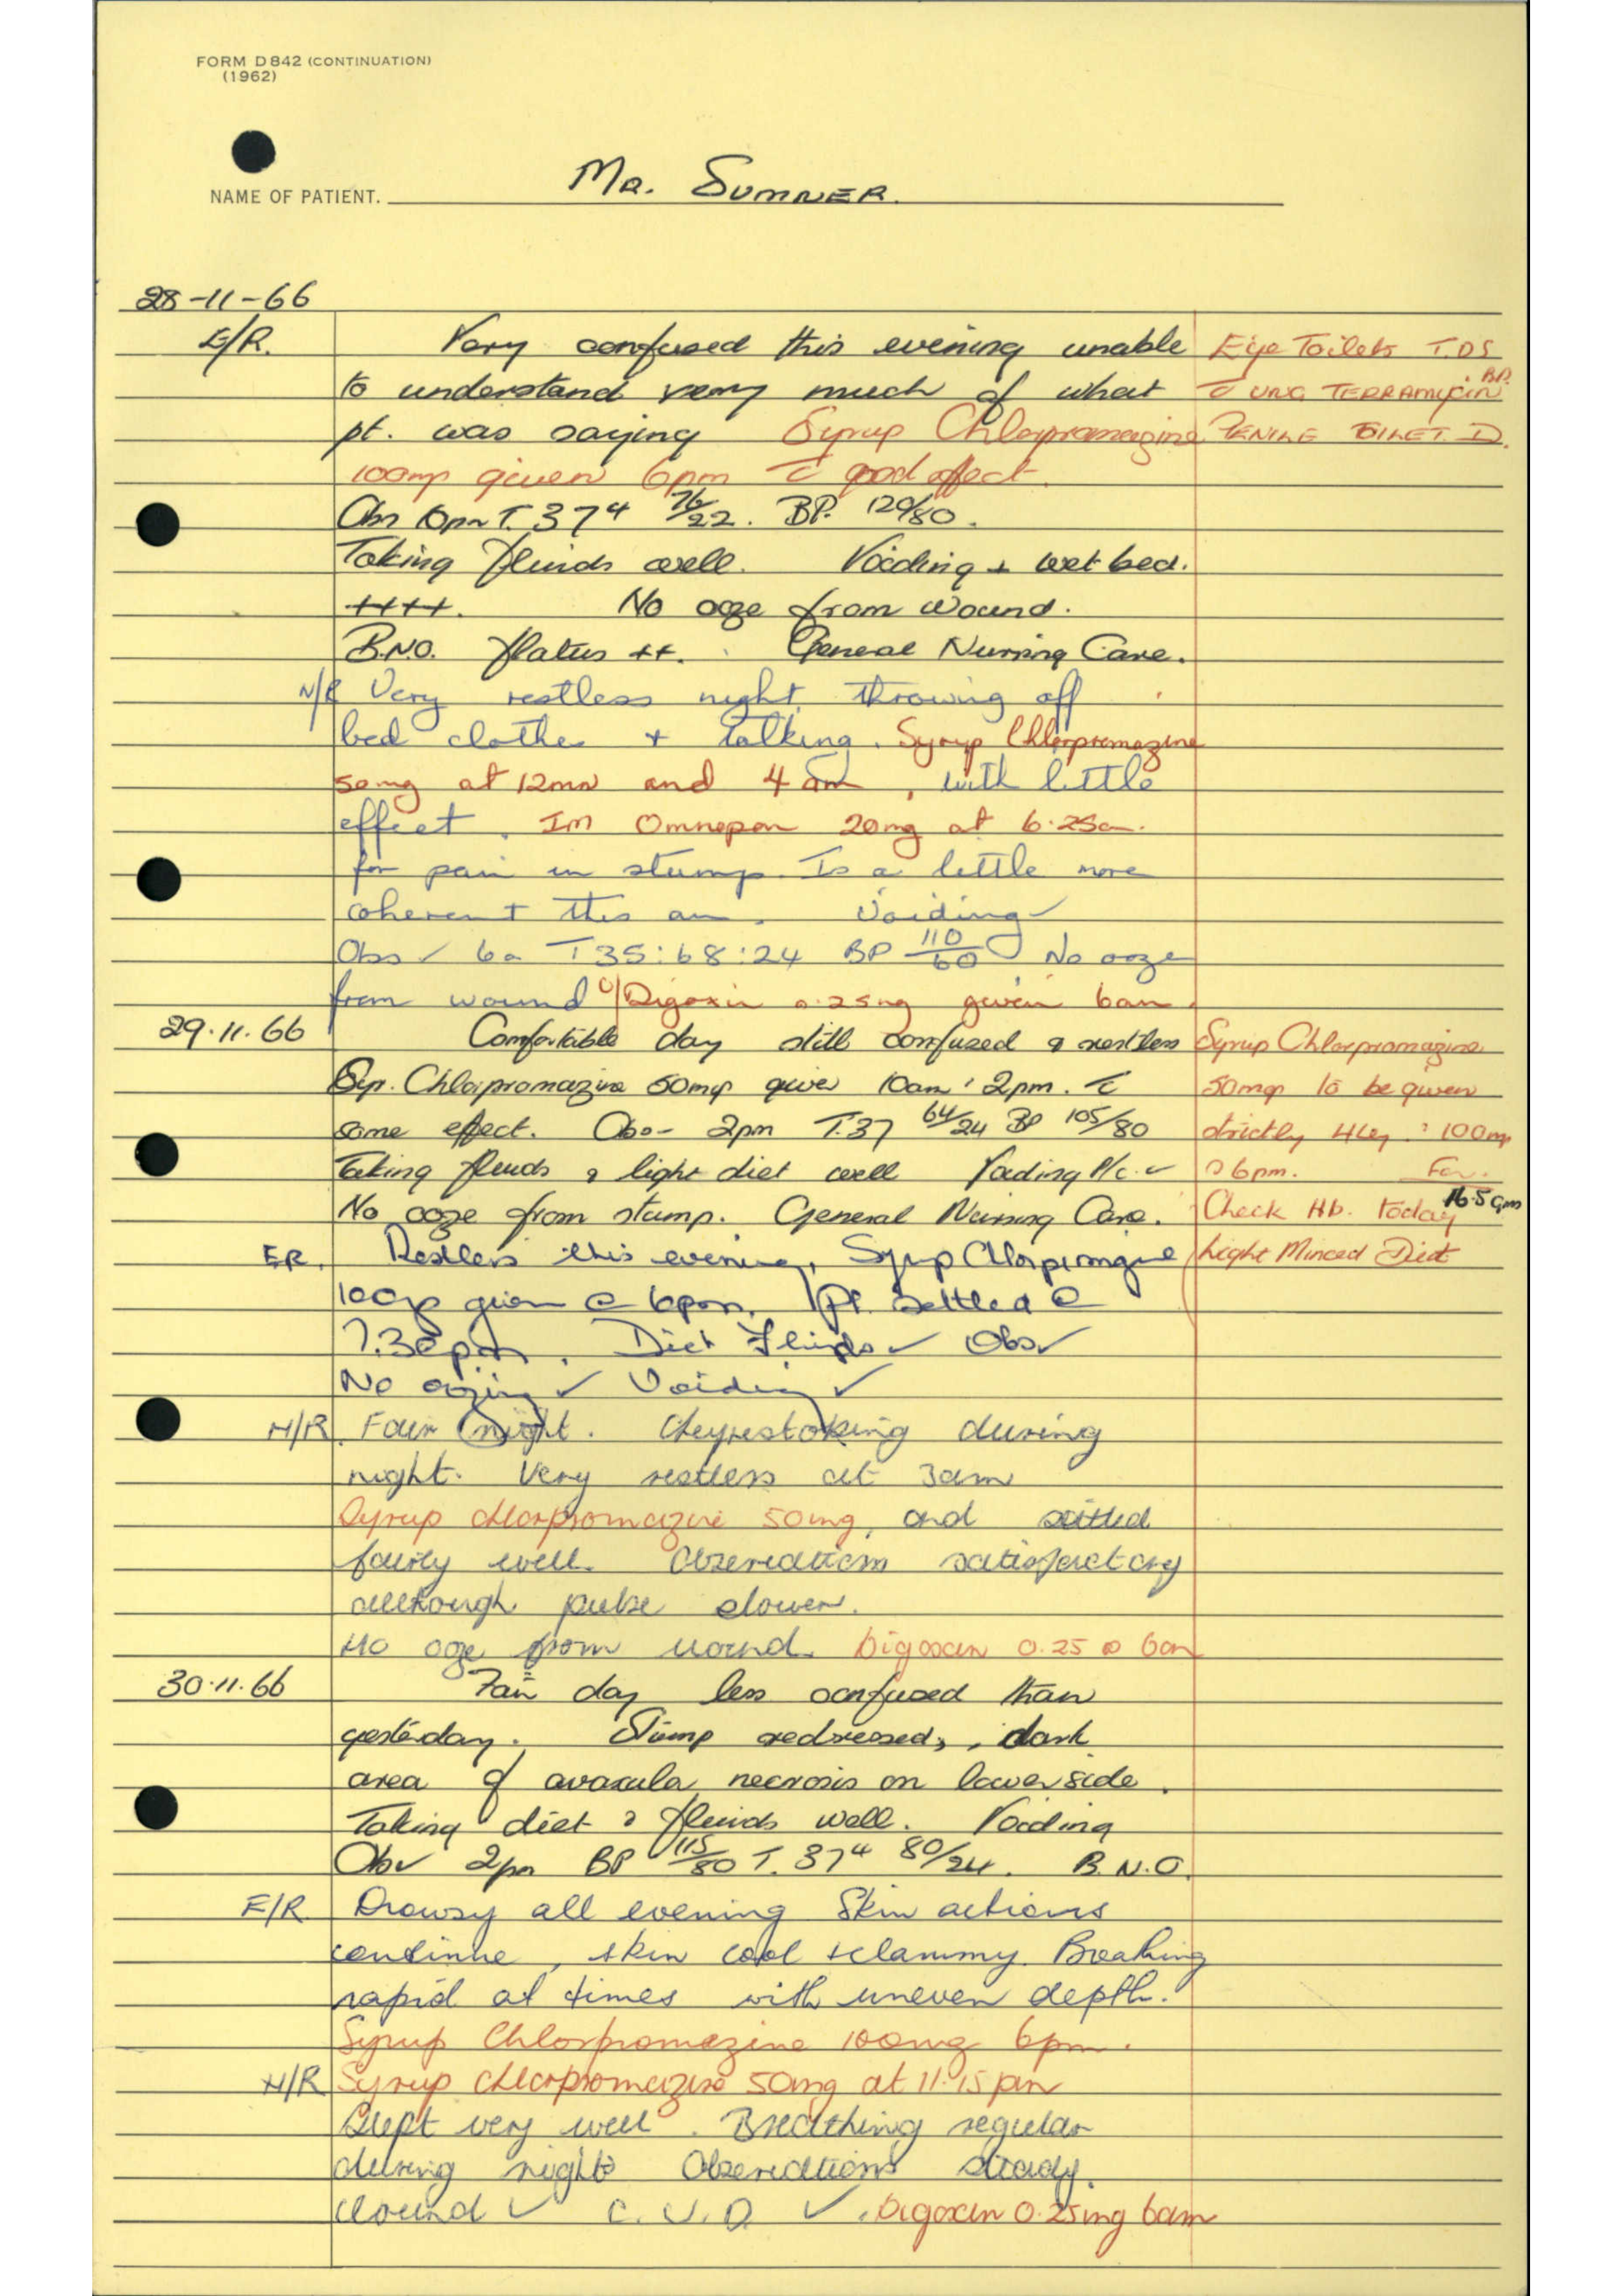 FORM D842 (CONTINUATION)
(1962)
NAME OF PATIENT. Mr. SUMNER.
28-11-66
E/R. Very confused this evening unable
Eye Toilets T.D.S
to understand very much of what
c̄ UNG TERRAMYCIN BP.
pt. was saying Syrup Chlorpromazine
PENILE TOILET
100mg given 6pm c̄ good effect.
Obs 6pm T. 37⁴ 76/22. BP. 120/80.
Taking fluids well. Voiding + wet bed.
++++. No ooze from wound.
B.N.O. flatus ++. General Nursing Care.
N/R Very restless night, throwing off
bed clothes + talking. Syrup Chlorpromazine
50mg at 12mn and 4 am, with little
effect. IM Omnopon 20mg at 6.25am.
for pain in stump. Is a little more
coherent this am. Voiding ✓
Obs ✓ 6a T35:68:24 BP 110/60 No ooze
from wound Digoxin 0.25mg given 6am.
29.11.66 Comfortable day still confused & restless
Syrup Chlorpromazine
Syp. Chlorpromazine 50mg given 10am : 2pm. c̄
50mg to be given
some effect. Obs- 2pm T.37 64/24 BP 105/80
strictly 4hly : 100mg
Taking fluids & light diet well Voiding ✓
6pm.
No ooze from stump. General Nursing Care.
Check Hb. today 16.5 gm
ER. Restless this evening, Syrup Chlorpromazine
Light Minced Diet
100mg given @ 6pm. Pt. settled @
7.30pm. Diet Fluids ✓ Obs ✓
No oozing ✓ Voiding ✓
N/R. Fair night. Cheynestoking during
night. Very restless at 3am
Syrup chlorpromazine 50mg, and settled
fairly well. Observations satisfactory
allthough pulse slower.
No ooze from wound. Digoxin 0.25 @ 6am
30.11.66 Fair day less confused than
yesterday. Stump redressed, dark
area of avascula necrosis on lower side.
Taking diet & fluids well. Voiding
Obs ✓ 2pm BP 115/80 T. 37⁴ 80/24. B.N.O.
E/R Drowsy all evening Skin actions
continue, skin cool + clammy. Breathing
rapid at times with uneven depth.
Syrup Chlorpromazine 100mg 6pm.
N/R Syrup chlorpromazine 50mg at 11.15pm
Slept very well. Breathing regular
during night Observations steady.
Wound ✓ C.V.D. ✓. Digoxin 0.25mg 6am